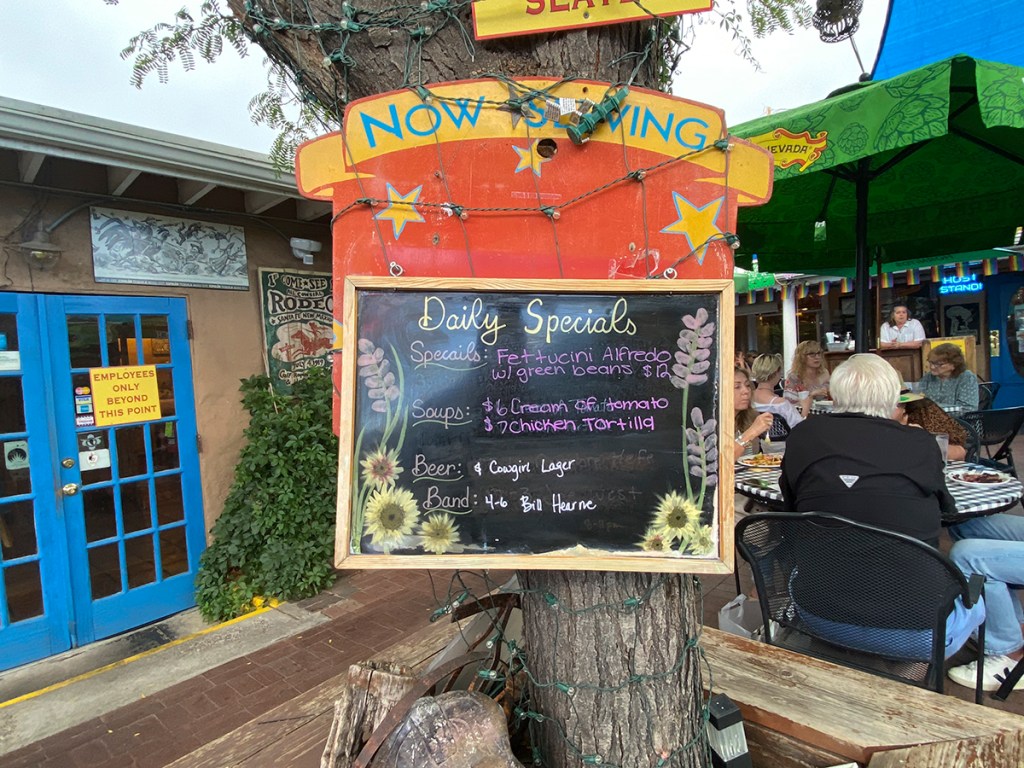 SEATE
NOW SERVING
NEVADA
HOST
STAND!
COME & SEE
RODEO
SANTA FE, NEW MEXICO
EMPLOYEES
ONLY
BEYOND
THIS POINT
Daily Specials
Specails: Fettucini Alfredo
w/ green beans $12
Soups: $6 Cream of tomato
$7 Chicken Tortilla
Beer: Cowgirl Lager
Band: 4-6 Bill Hearne